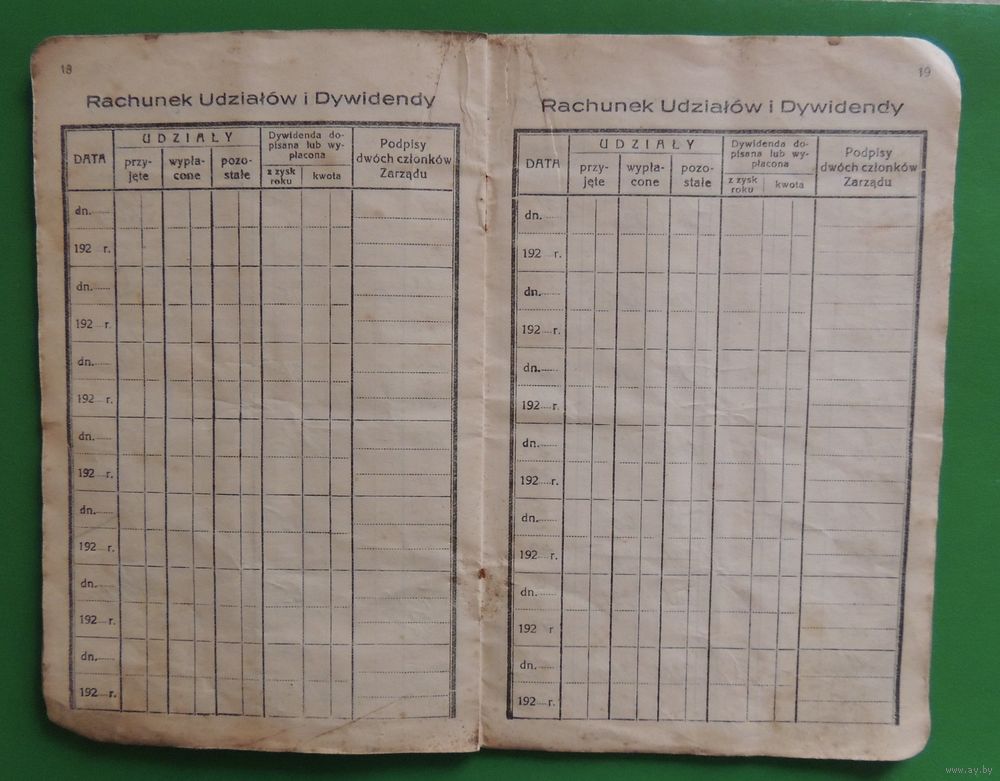 18
Rachunek Udziałów i Dywidendy
DATA
UDZIAŁY
przy-
jęte
wypła-
cone
pozo-
stałe
Dywidenda do-
pisana lub wy-
płacona
z zysk
roku
kwota
Podpisy
dwóch członków
Zarządu
dn.
192 r.
dn.
192 r.
dn.
192 r.
dn.
192 r.
dn.
192 r.
dn.
192 r.
dn.
192 r.
19
Rachunek Udziałów i Dywidendy
DATA
UDZIAŁY
przy-
jęte
wypła-
cone
pozo-
stałe
Dywidenda do-
pisana lub wy-
płacona
z zysk
roku
kwota
Podpisy
dwóch członków
Zarządu
dn.
192 r.
dn.
192 r.
dn.
192 r.
dn.
192 r.
dn.
192 r.
dn.
192 r
dn.
192 r.
www.ay.by